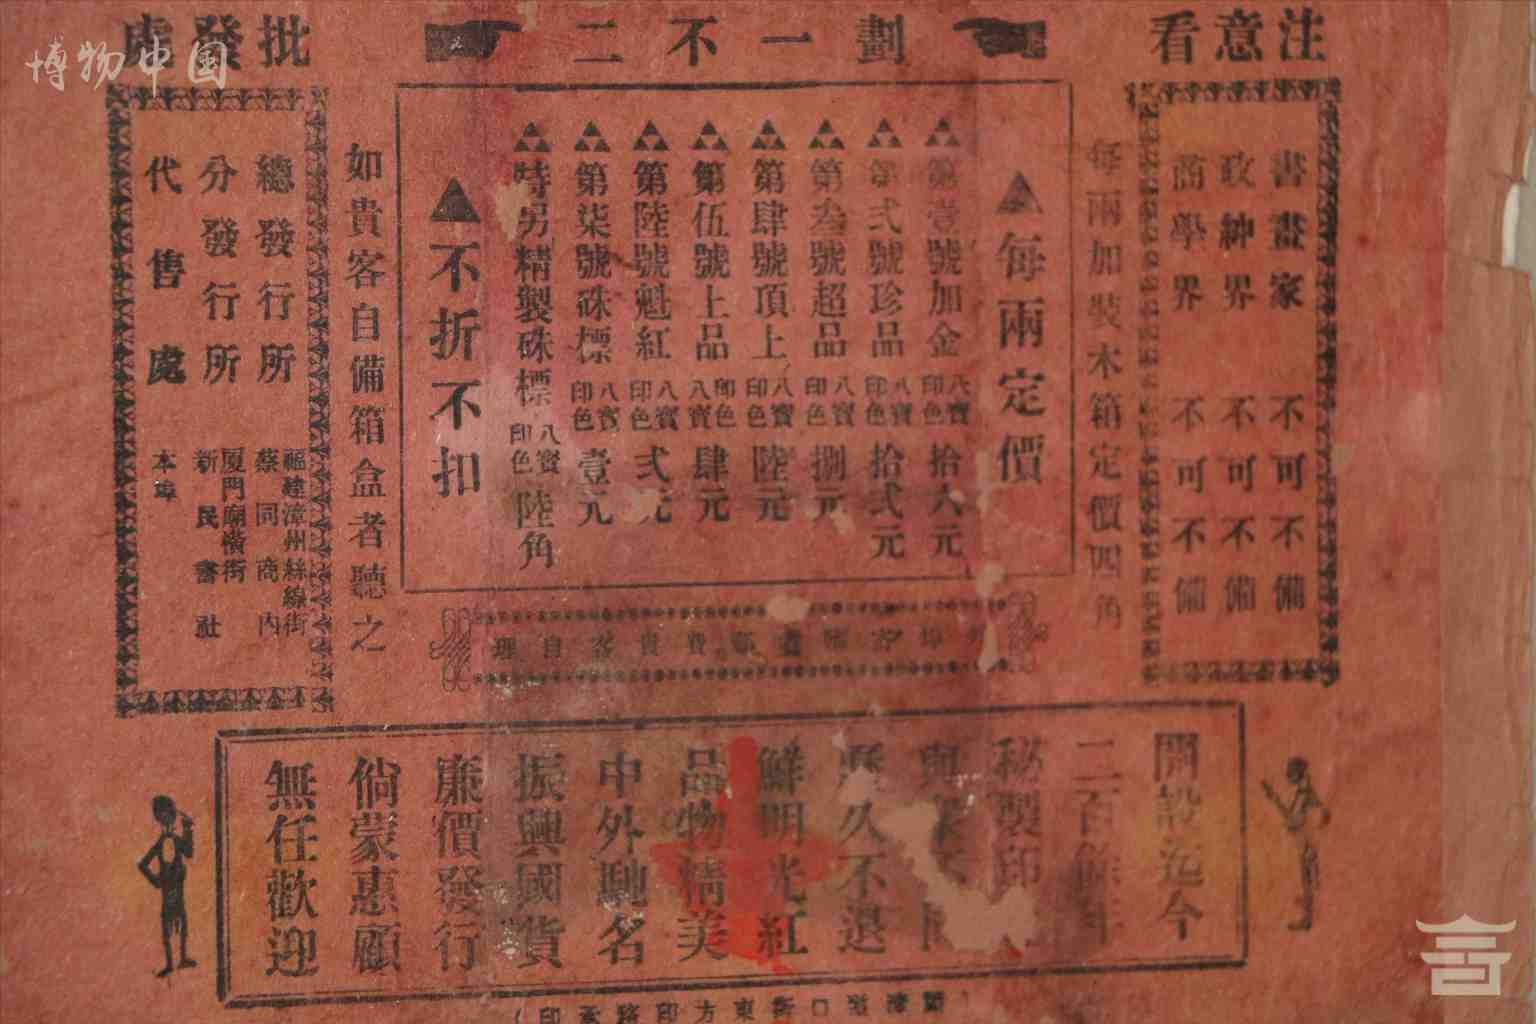 注意看
劃一不二
批發處
書畫家 不可不備
政紳界 不可不備
商學界 不可不備
每兩加裝木箱定價四角
每兩定價
第壹號加金 八寶印色 拾六元
第弍號珍品 八寶印色 拾弍元
第叁號超品 八寶印色 捌元
第肆號頂上 八寶印色 陸元
第伍號上品 八寶印色 肆元
第陸號魁紅 八寶印色 弍元
第柒號硃標 八寶印色 壹元
特另精製硃標 八寶印色 陸角
不折不扣
如貴客自備箱盒者聽之
總發行所 福建漳州絲線街蔡同商內
分發行所 廈門廟橫街新民書社
代售處 本埠
郵費貴客自理
開設迄今
二百餘年
秘製印
歷久不退
鮮明光紅
品物精美
中外馳名
振興國貨
廉價發行
倘蒙惠顧
無任歡迎
街東方印務承印
博物中国